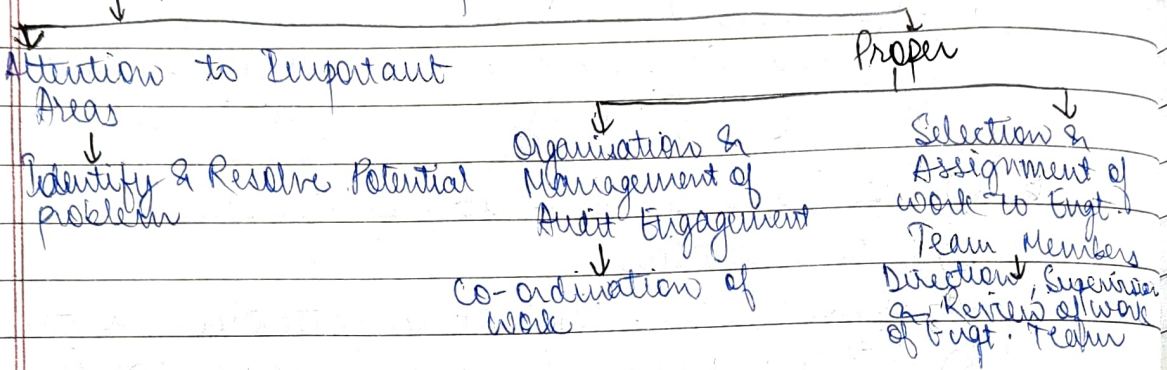 Proper
Attention to Important
Areas
Identify & Resolve Potential
problem
Organisation &
Management of
Audit Engagement
Co-ordination of
work
Selection &
Assignment of
work to Engt.
Team Members
Direction, Supervision
& Review of work
of Engt. Team